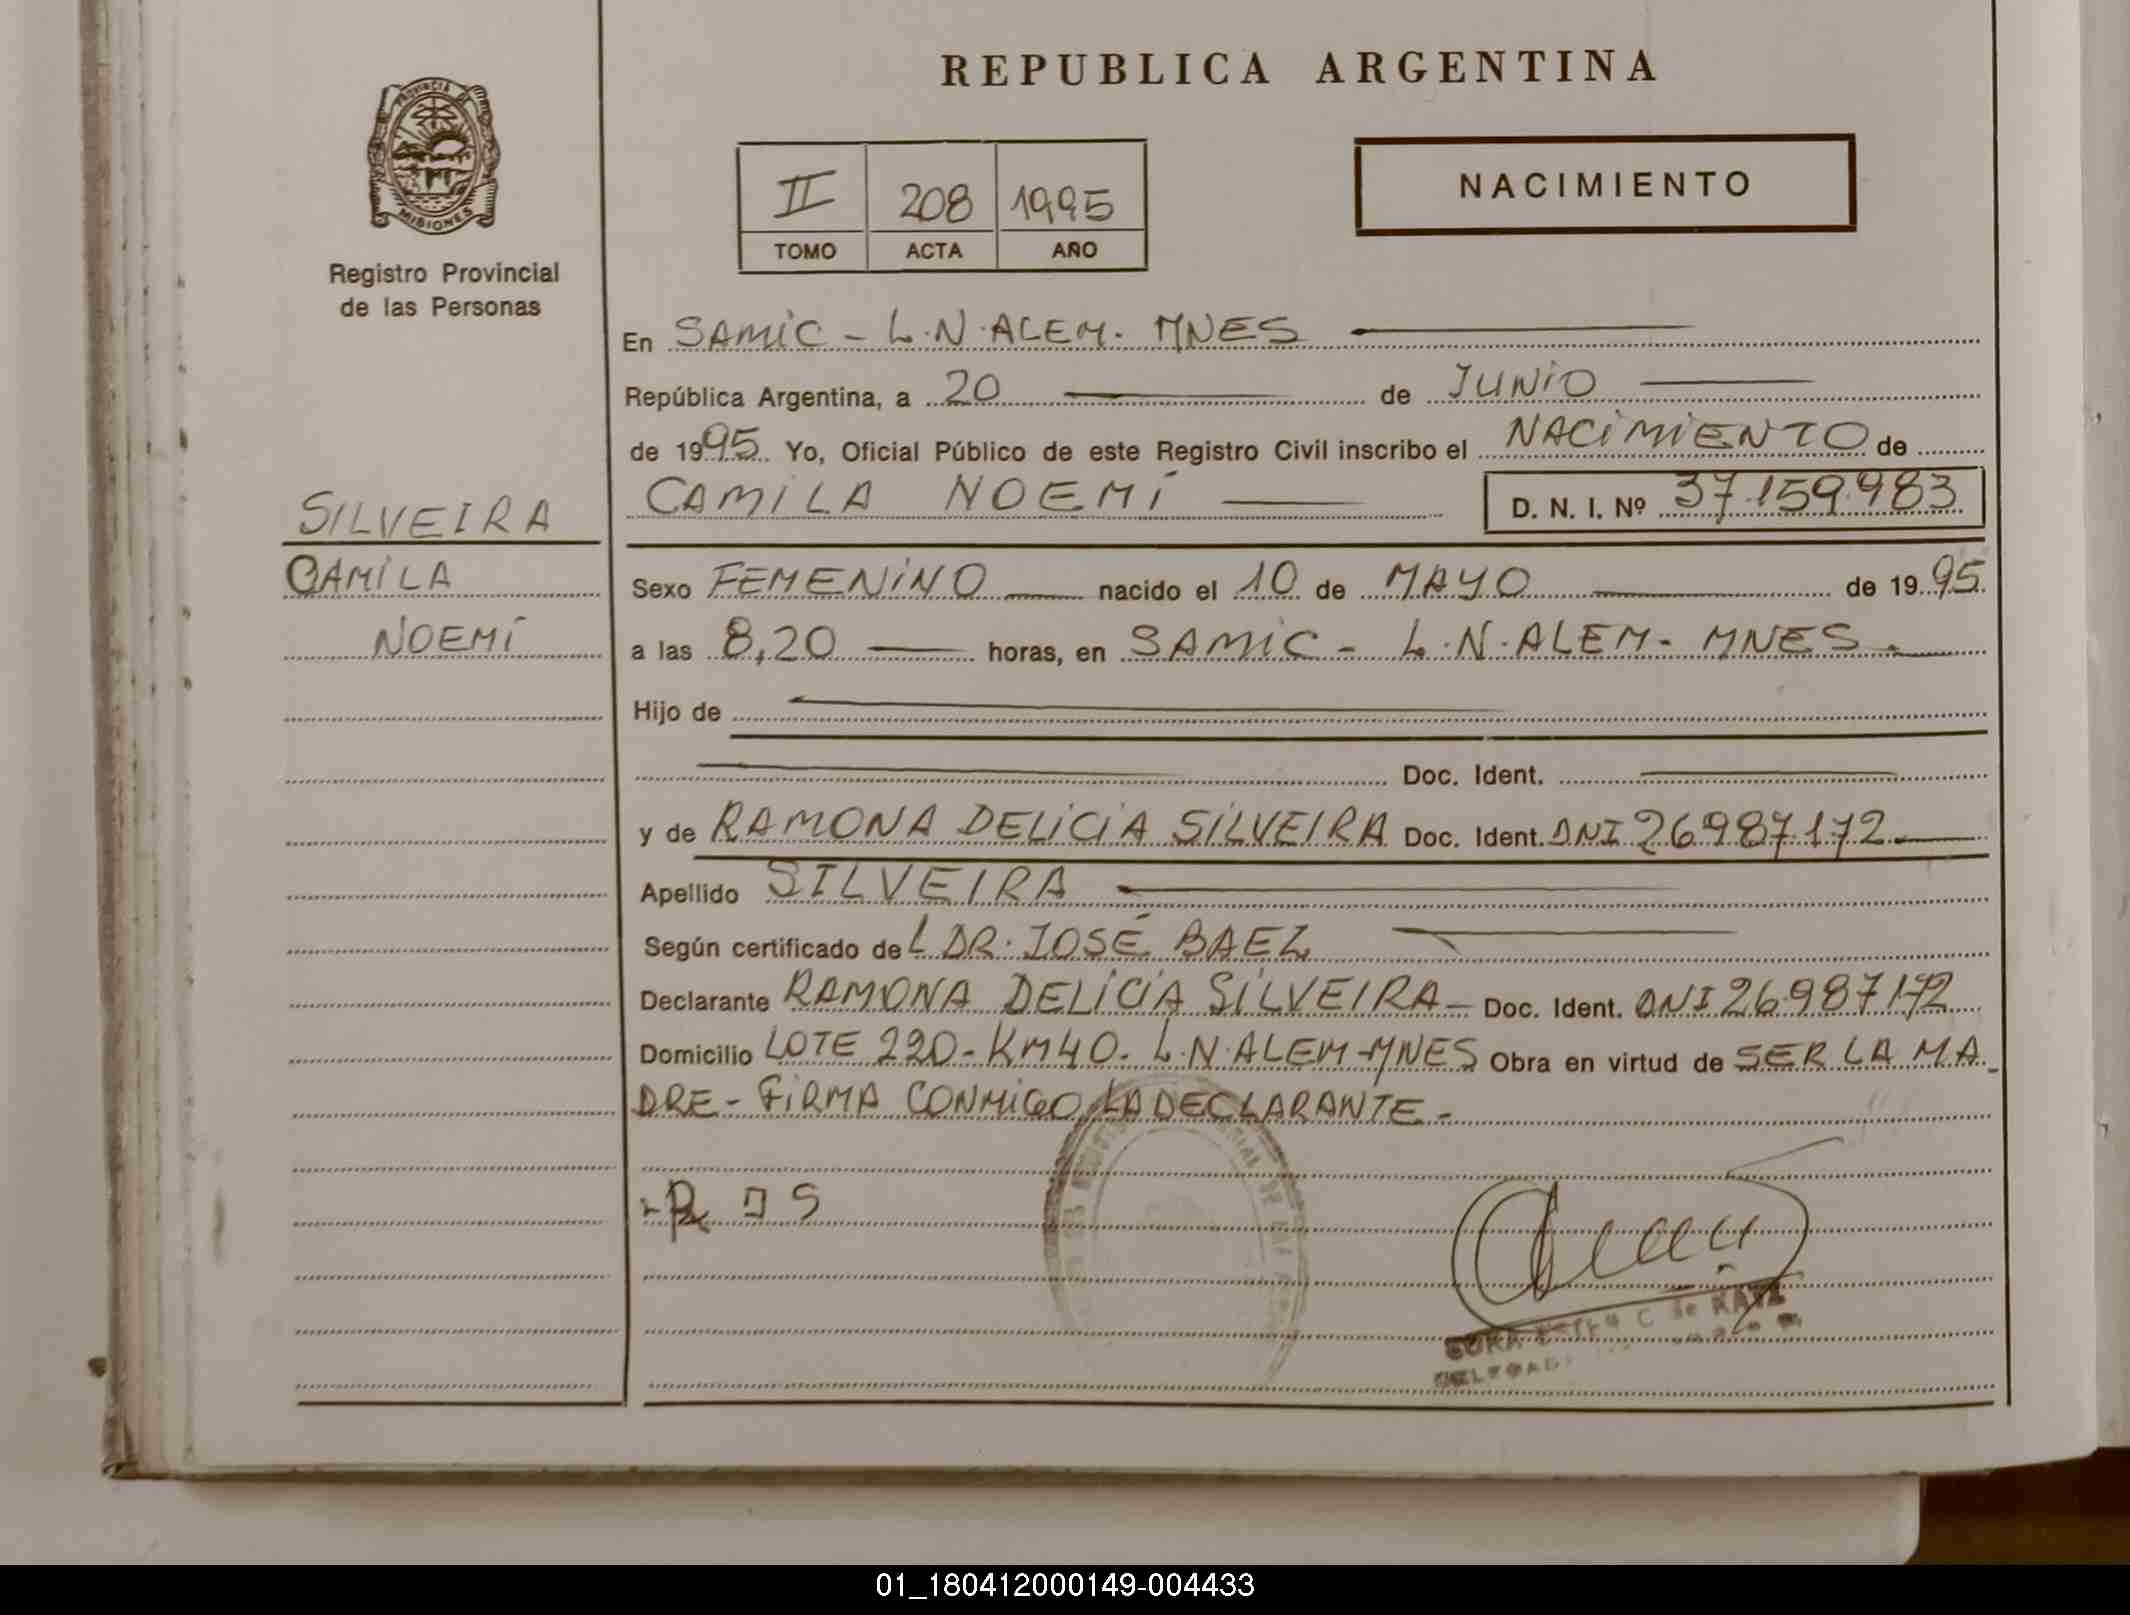 REPUBLICA ARGENTINA
PROVINCIA DE
MISIONES
Registro Provincial
de las Personas
II 208 1995
TOMO ACTA AÑO
NACIMIENTO
En SAMIC - L.N.ALEM. MNES
República Argentina, a 20 de JUNIO
de 1995. Yo, Oficial Público de este Registro Civil inscribo el NACIMIENTO de
CAMILA NOEMÍ D. N. I. Nº 37.159.983
SILVEIRA
CAMILA
NOEMÍ
Sexo FEMENINO nacido el 10 de MAYO de 1995.
a las 8,20 horas, en SAMIC - L.N.ALEM - MNES.
Hijo de
Doc. Ident.
y de RAMONA DELICIA SILVEIRA Doc. Ident. DNI 26987.172.
Apellido SILVEIRA
Según certificado del DR. JOSÉ BAEZ
Declarante RAMONA DELICIA SILVEIRA - Doc. Ident. DNI 26.987172
Domicilio LOTE 220 - KM 40. L.N.ALEM-MNES Obra en virtud de SER LA MA_
DRE - FIRMA CONMIGO LA DECLARANTE -
R D S
C de KATZ
01_180412000149-004433